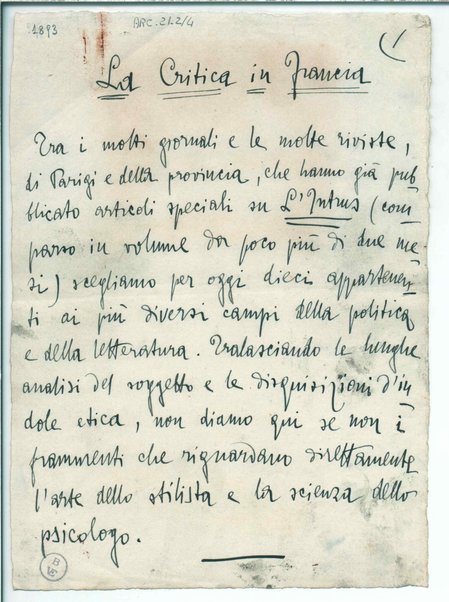 1893 ARC.21.2/4 1
La Critica in Francia
Tra i molti giornali e le molte riviste,
di Parigi e della provincia, che hanno già pub
blicato articoli speciali su L'Intrus (com
parso in volume da poco più di due me-
si) scegliamo per oggi dieci appartenen
ti ai più diversi campi della politica
e della letteratura. Tralasciando le lunghe
analisi del soggetto e le disquisizioni d'in
dole etica, non diamo qui se non i
frammenti che riguardano direttamente
l'arte dello stilista e la scienza dello
psicologo.
B
VE